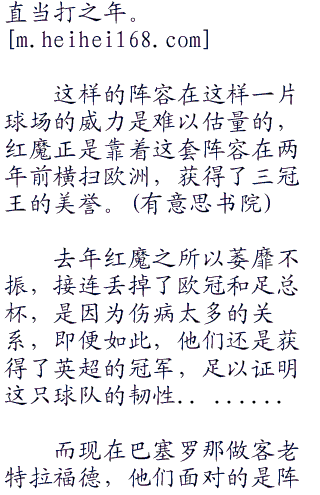 直当打之年。
[m.heihei168.com]
这样的阵容在这样一片
球场的威力是难以估量的，
红魔正是靠着这套阵容在两
年前横扫欧洲，获得了三冠
王的美誉。(有意思书院)
去年红魔之所以萎靡不
振，接连丢掉了欧冠和足总
杯，是因为伤病太多的关
系，即便如此，他们还是获
得了英超的冠军，足以证明
这只球队的韧性.. ......
而现在巴塞罗那做客老
特拉福德，他们面对的是阵